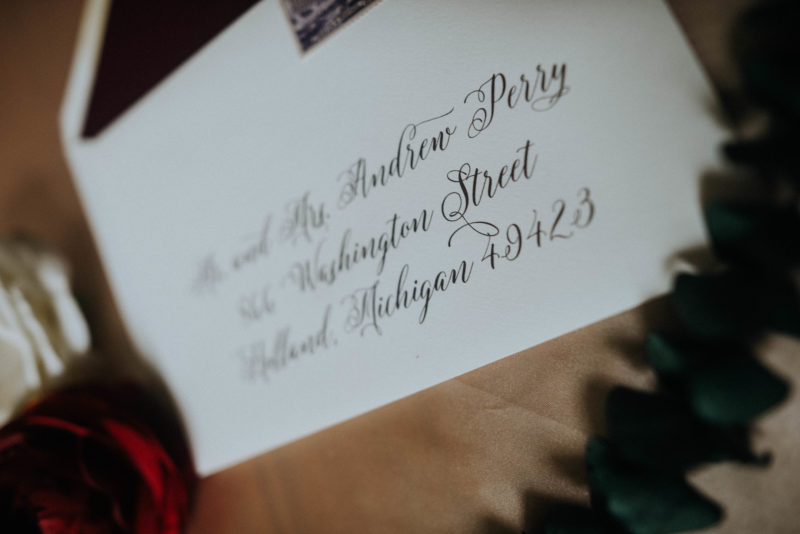 Mr. and Mrs. Andrew Perry
866 Washington Street
Holland, Michigan 49423